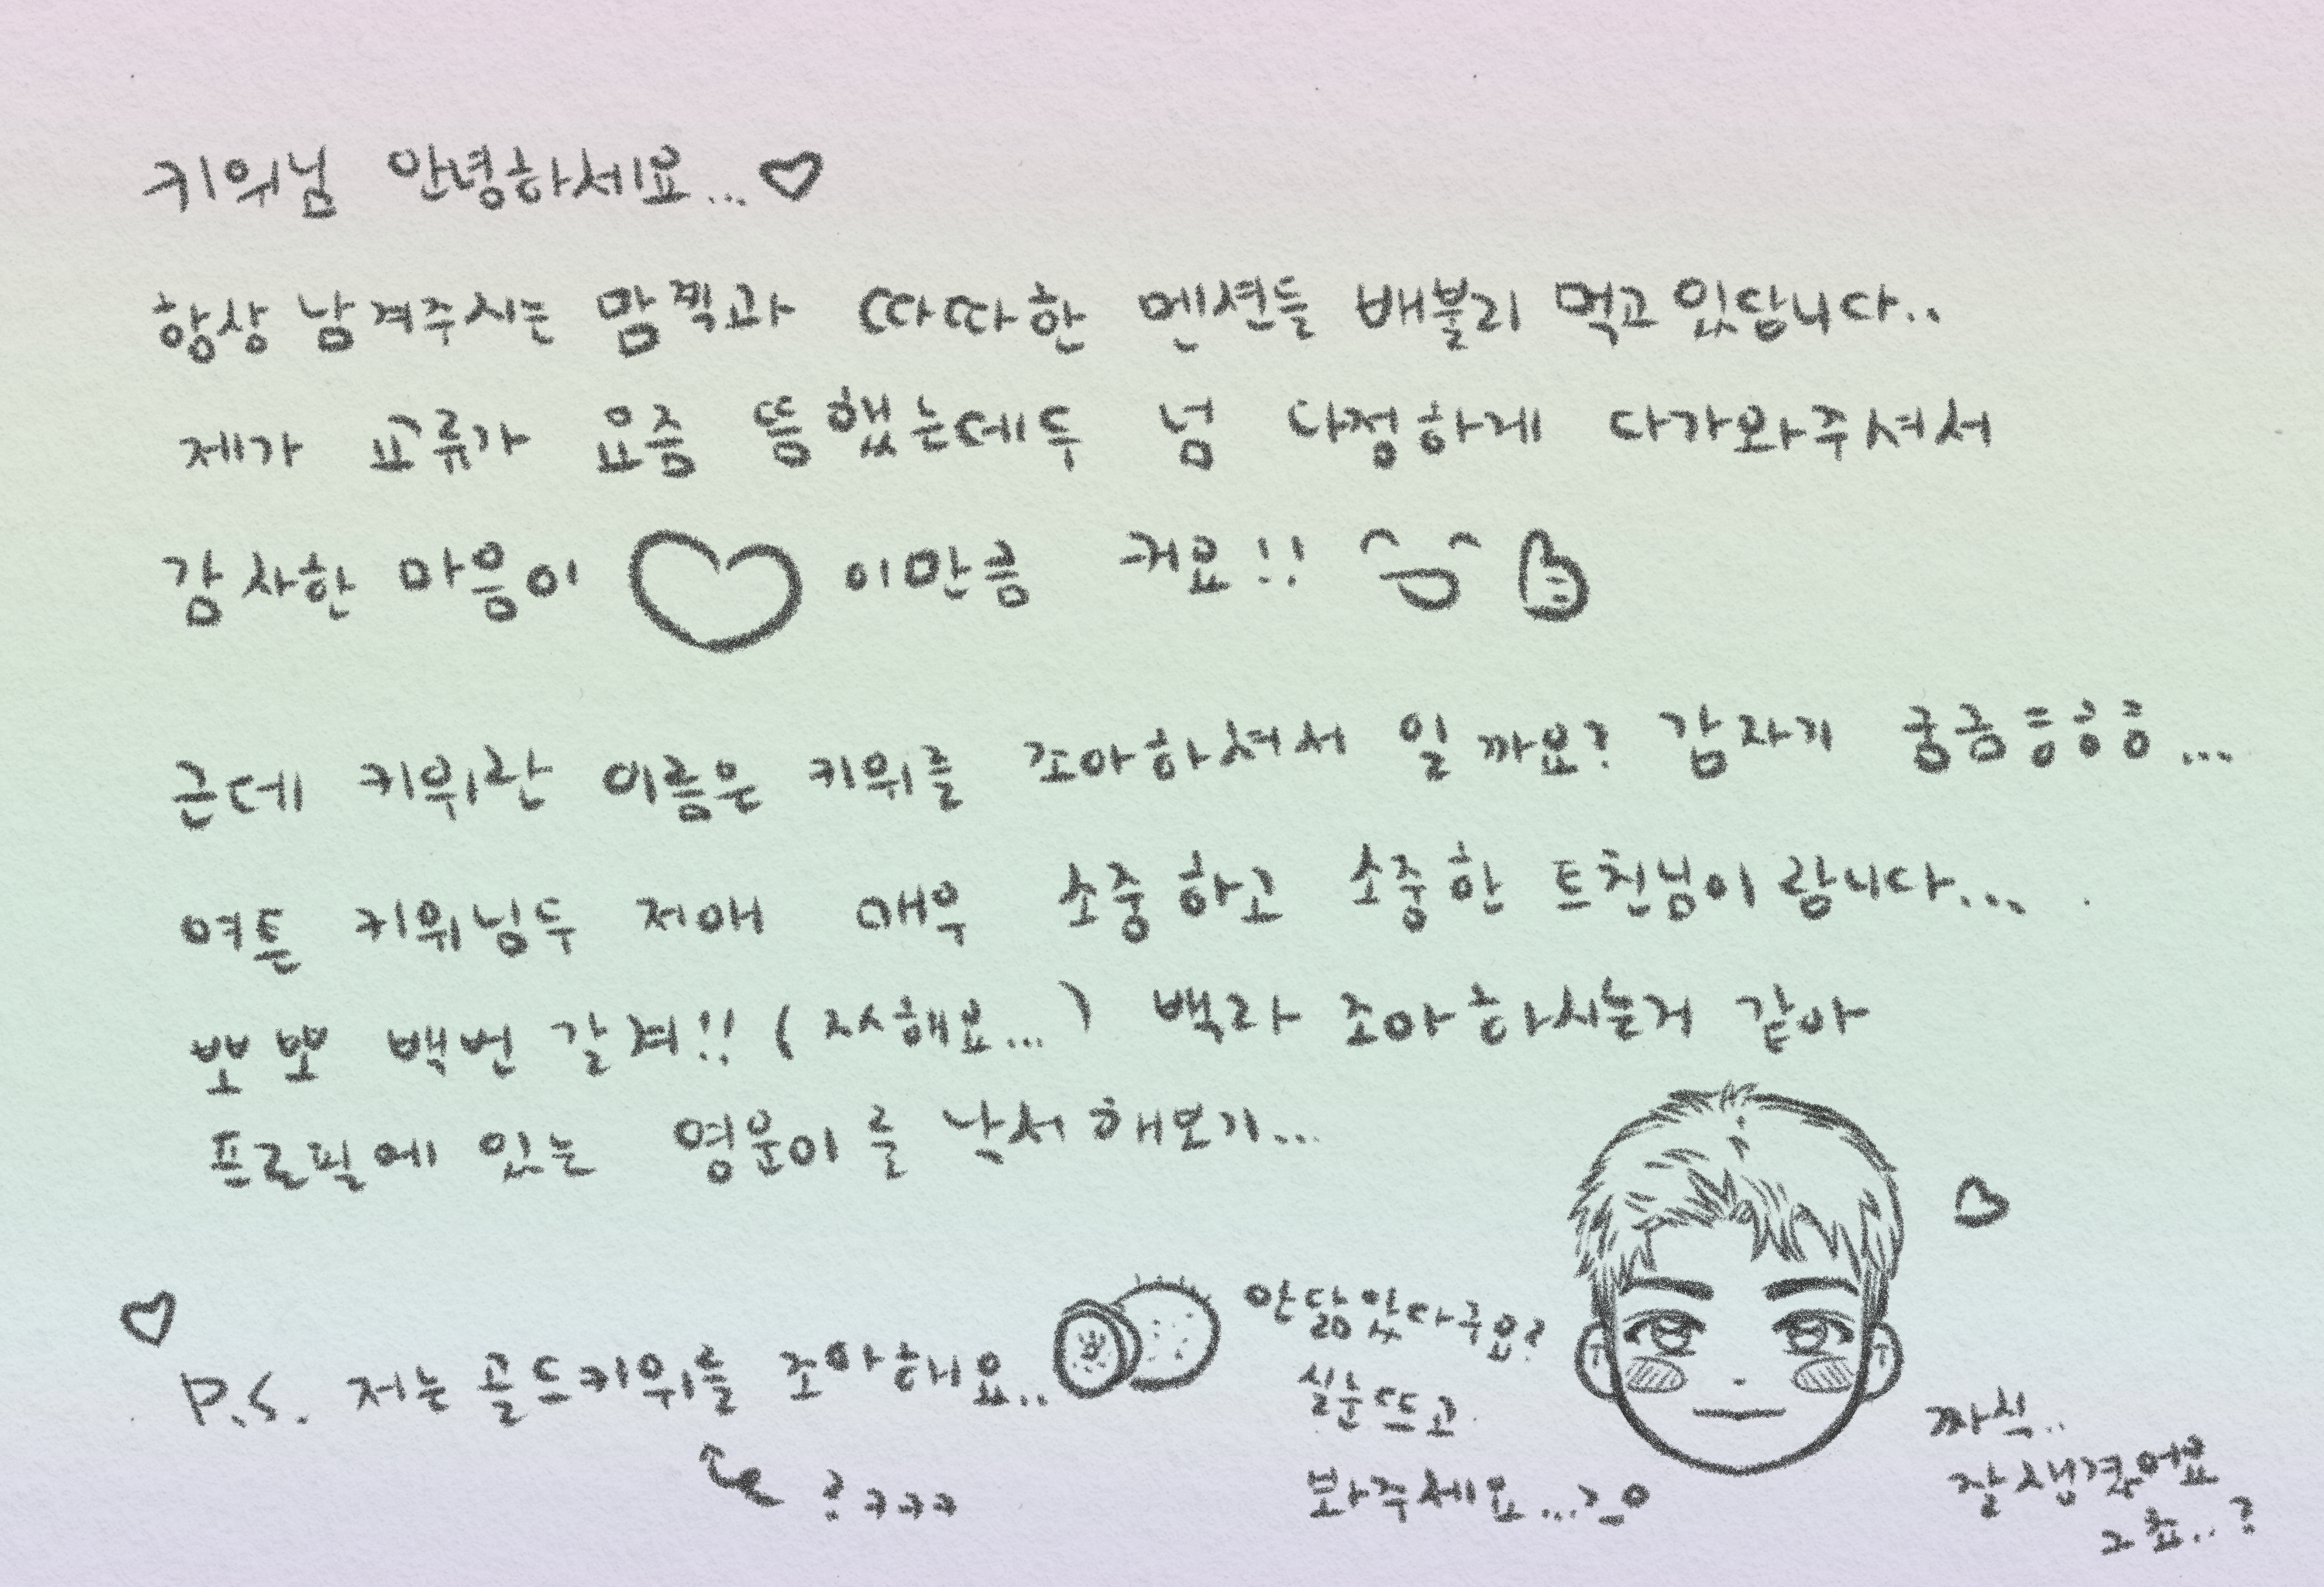 키위님 안녕하세요... ♡
항상 남겨주시는 맘찍과 따따한 멘션들 배불리 먹고 있답니다..
제가 교류가 요즘 뜸했는데두 넘 다정하게 다가와주셔서
감사한 마음이 ♡ 이만큼 커요!!
근데 키위란 이름은 키위를 조아하셔서 일까요? 갑자기 궁금응응응...
여튼 키위님두 저애 매우 소중하고 소중한 트친님이랍니다...
뽀뽀 백번 갈겨!! (자해요...) 백라 조아하시는거 같아
프로필에 있는 영운이를 낙서해보기...
P.S. 저는 골드키위를 조아해요..
?ㅋㅋㅋ
안닮았다구요?
실눈뜨고
봐주세요...
짜식..
잘생겼어요
그쵸..?